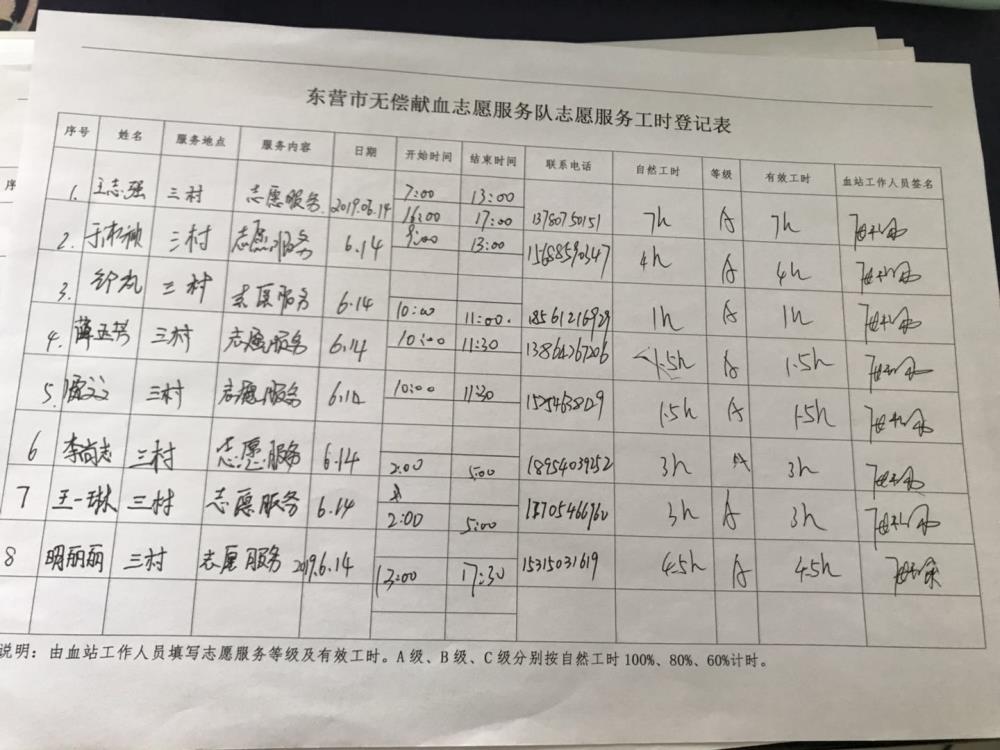 东营市无偿献血志愿服务队志愿服务工时登记表
序号 姓名 服务地点 服务内容 日期 开始时间 结束时间 联系电话 自然工时 等级 有效工时 血站工作人员签名
1. 王志强 三村 志愿服务 2019.06.14 7:00 13:00 13780750151 7h A 7h
16:00 17:00
2. 三村 志愿服务 6.14 9:00 13:00 15688590347 4h A 4h
3. 三村 志愿服务 6.14 10:00 11:00. 18561216929 1h A 1h
4. 三村 志愿服务 6.14 10:00 11:30 13864267206 1.5h A 1.5h
5. 三村 志愿服务 6.14 10:00 11:30 1.5h A 1.5h
6 李尚志 三村 志愿服务 6.14 2:00 5:00 18954039252 3h A 3h
7 王一琳 三村 志愿服务 6.14 2:00 5:00 3h A 3h
8 明丽丽 三村 志愿服务 2019.6.14 13:00 17:30 15315031619 4.5h A 4.5h
说明：由血站工作人员填写志愿服务等级及有效工时。A级、B级、C级分别按自然工时100%、80%、60%计时。